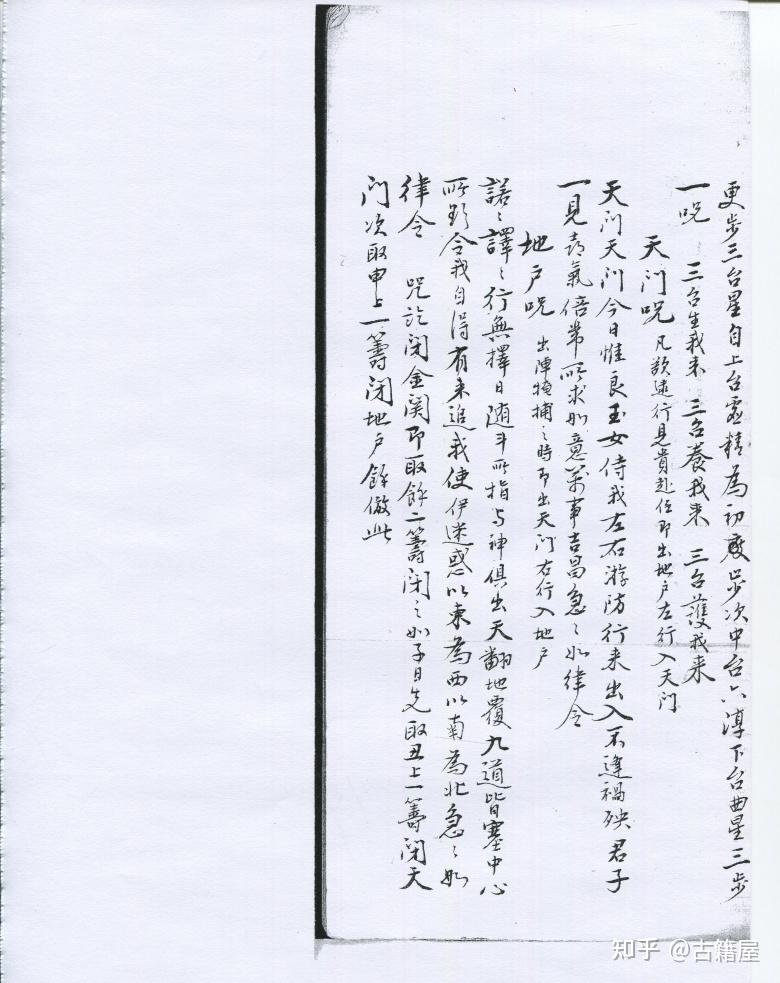 更步三台星自上台虛精為初度步次中台六淳下台曲星三步
一咒 三台生我來 三台養我來 三台護我來
天门咒 凡欲遠行見貴赴任即出地户左行入天门
天门天门今日惟良玉女侍我左右游防行来出入不逢禍殃君子
一見喜氣倍常所求如意萬事吉昌急〻如律令
地户咒 出陣掩捕之時即出天门右行入地户
諾〻譯〻行無擇日随斗所指与神俱出天翻地覆九道皆塞中心
所欲令我自得有来追我使伊迷惑以東為西以南為北急〻如
律令 咒訖闭金関即取餘二籌闭之如子日先取丑上一籌闭天
门次取申上一籌闭地户餘倣此
知乎 @古籍屋